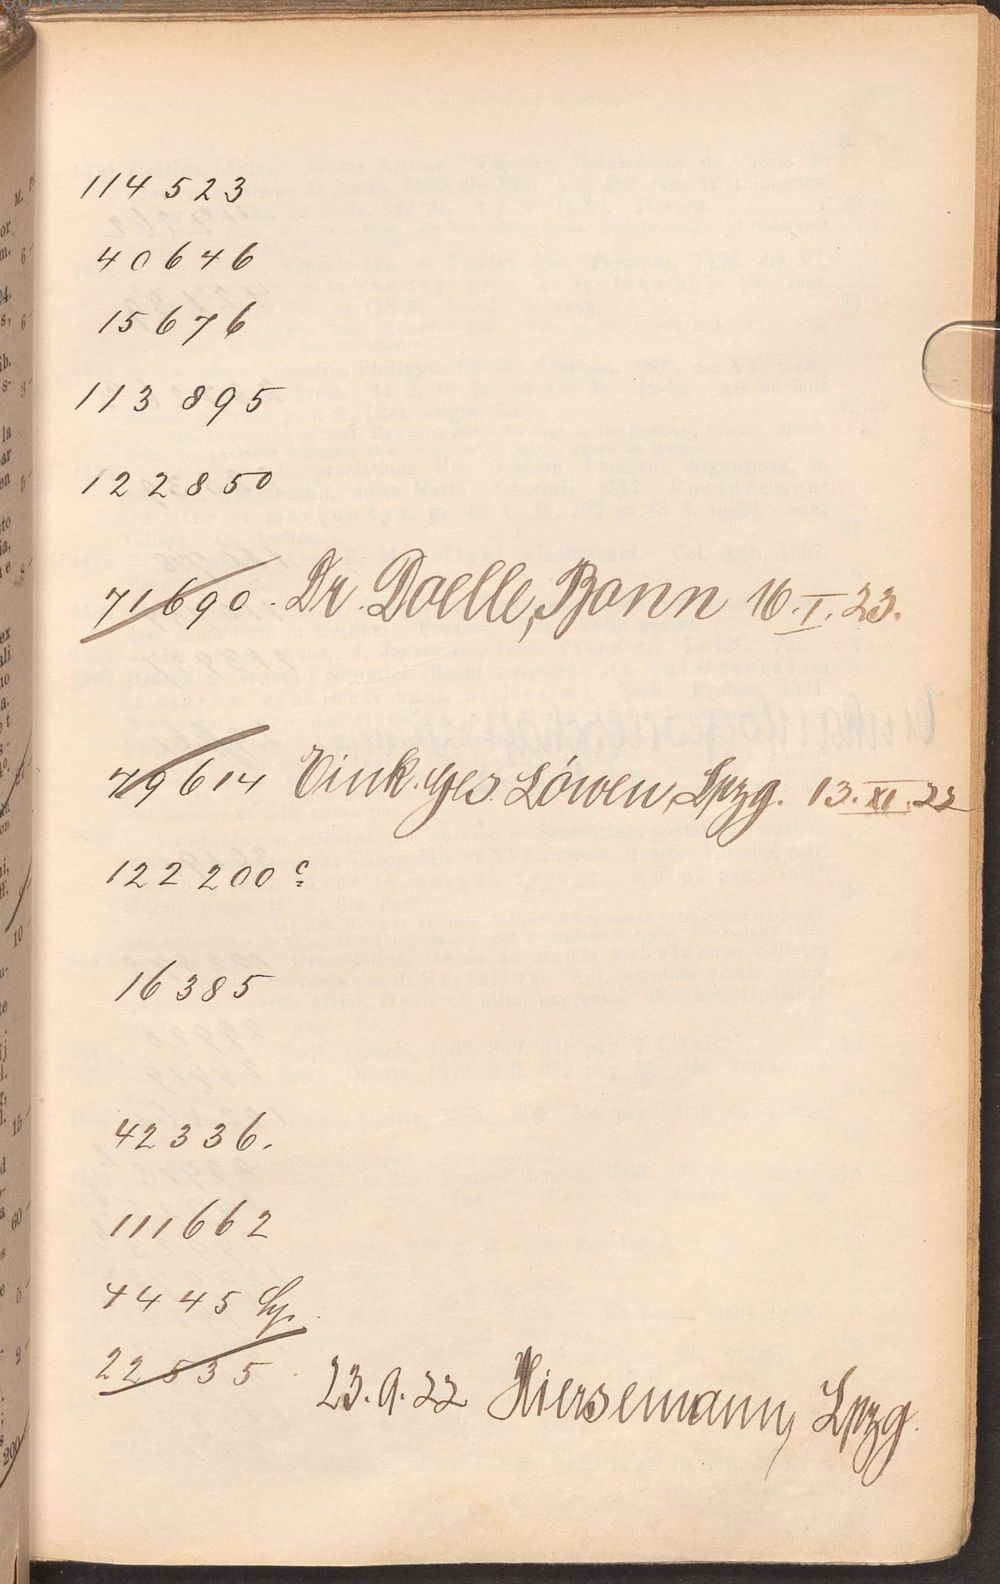 114 523
40646
15676
113 895
122 850
71690. Dr. Doelle, Bonn 16.I.23.
79614 Eink. Ges. Löwen, Lpzg. 13.XI.22
122 200 c
16385
42336.
111662
4445
22535 23.9.22 Hiersemann, Lpzg.